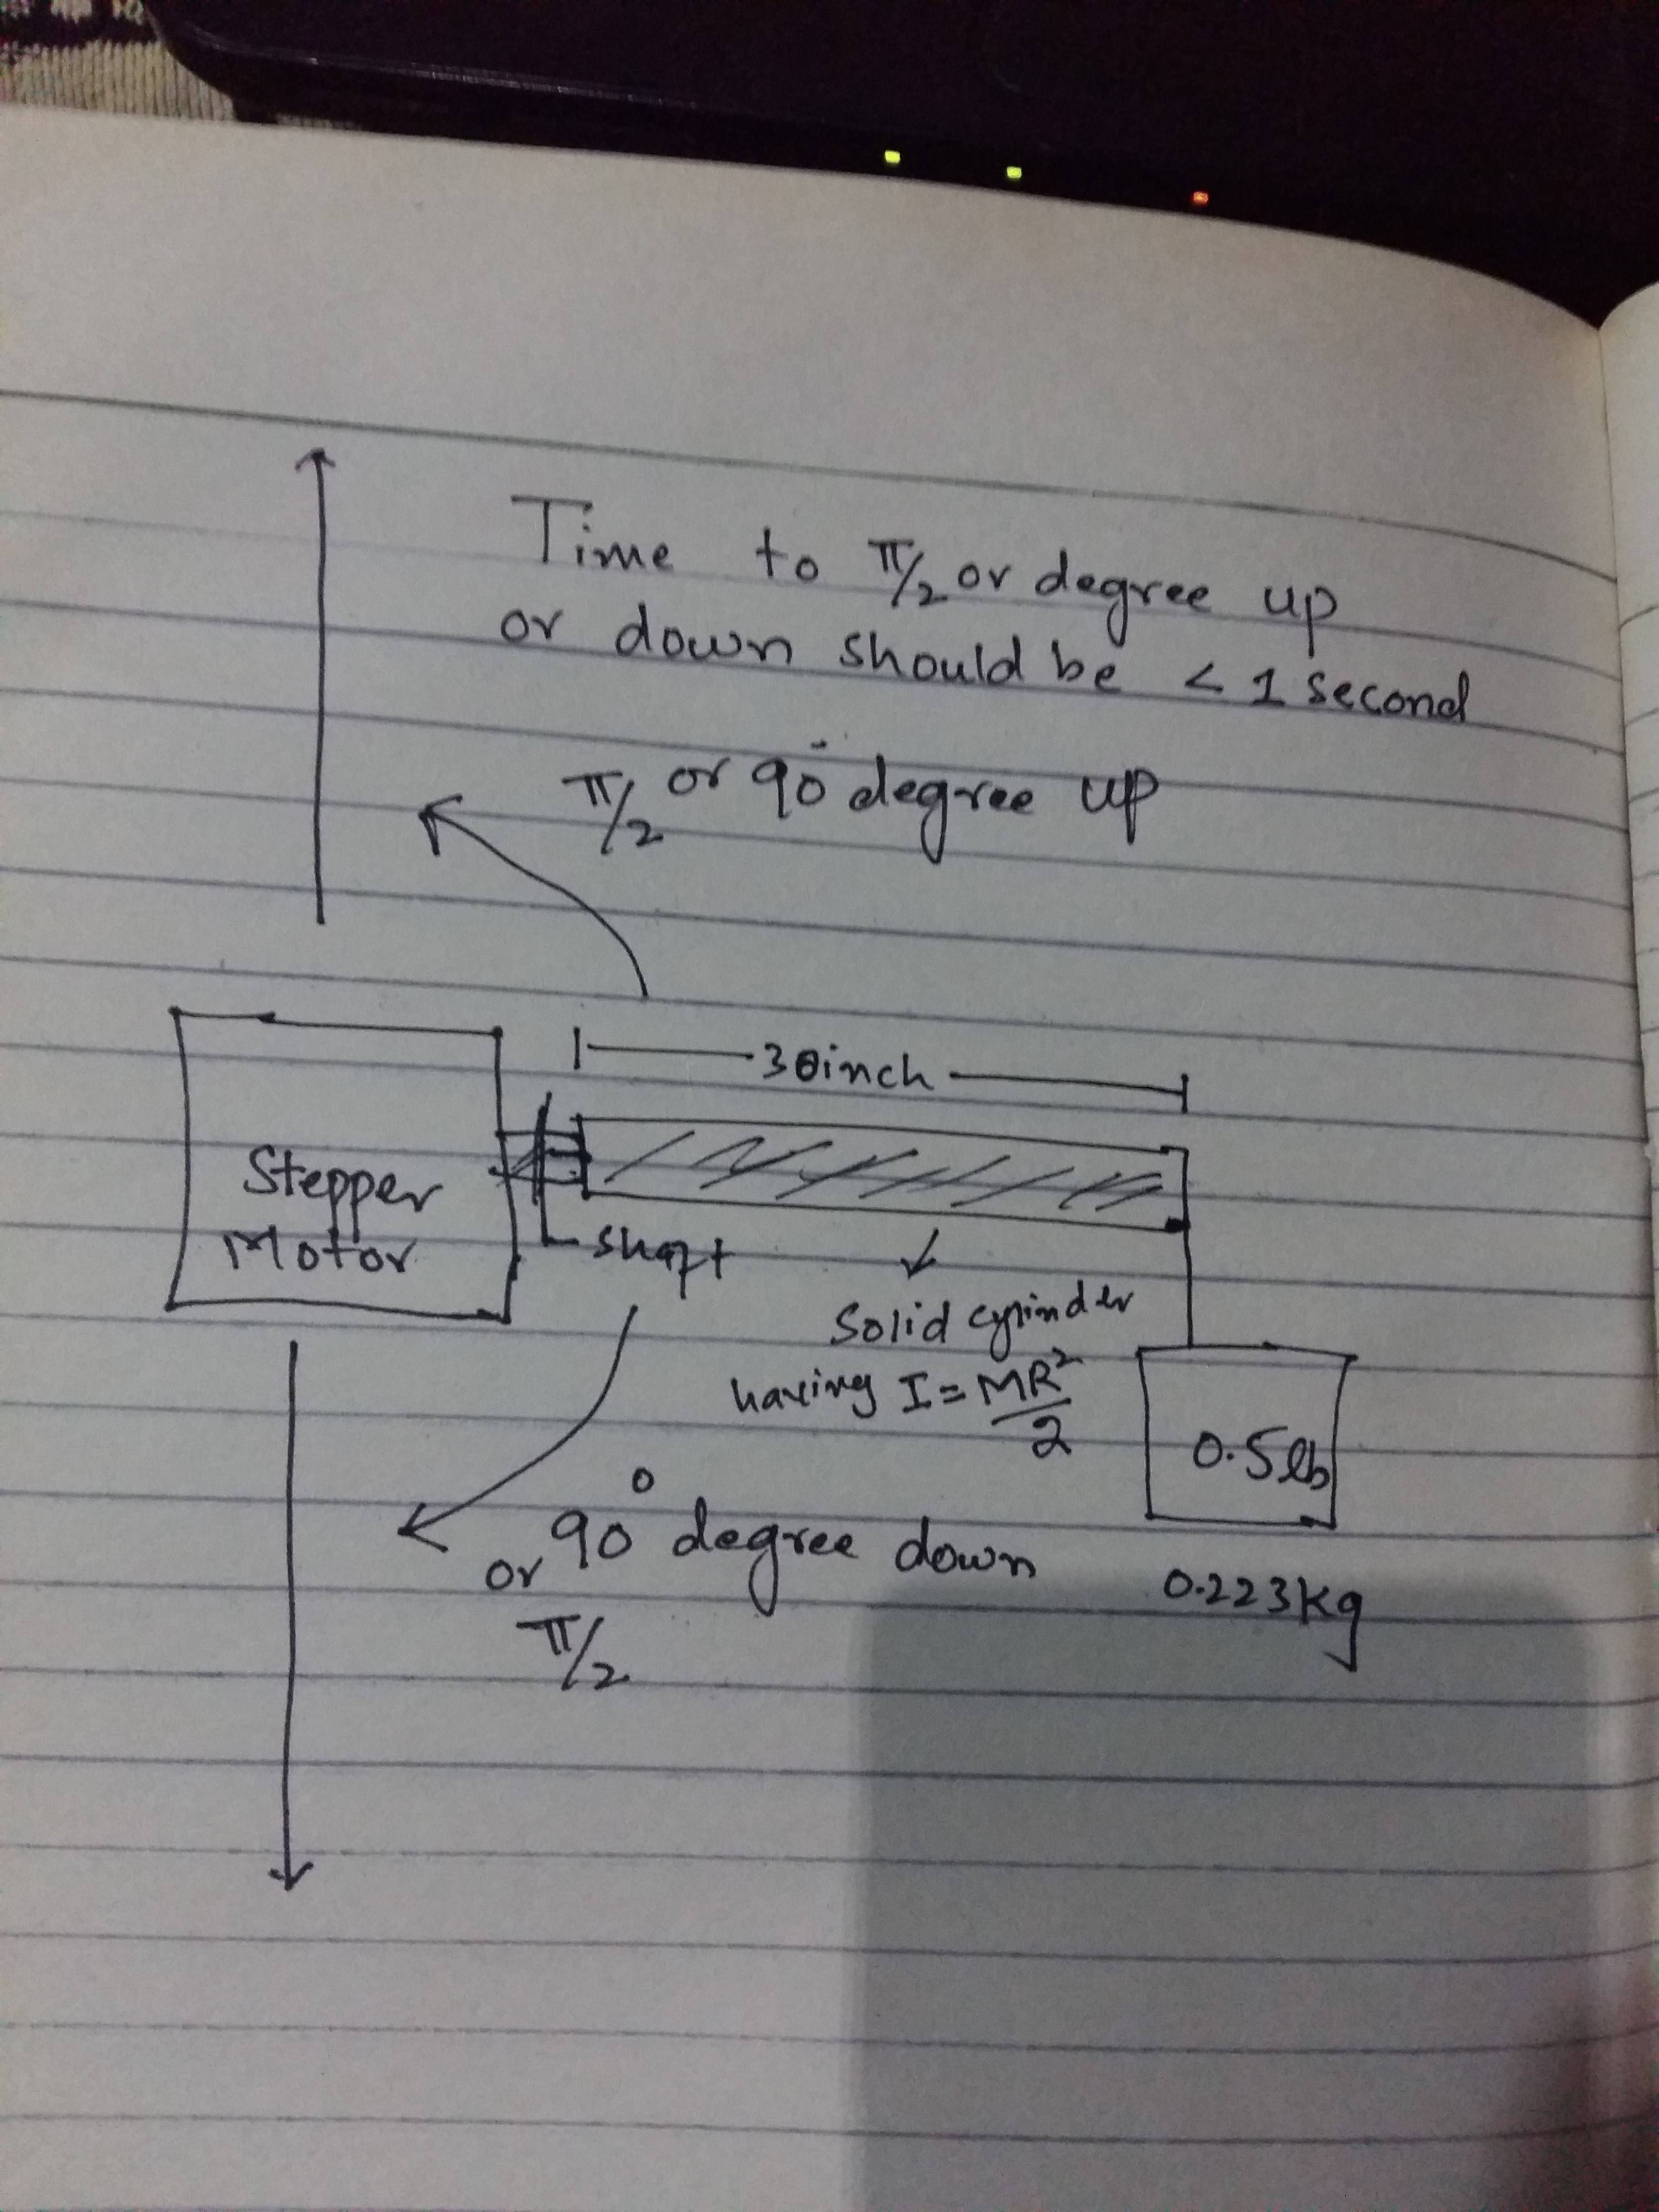 Time to π/2 or degree up
or down should be < 1 second
π/2 or 90° degree up
30inch
Stepper
Motor
shaft
Solid cylinder
having I = MR²/2
0.5lb
0.223kg
90° degree down
or
π/2